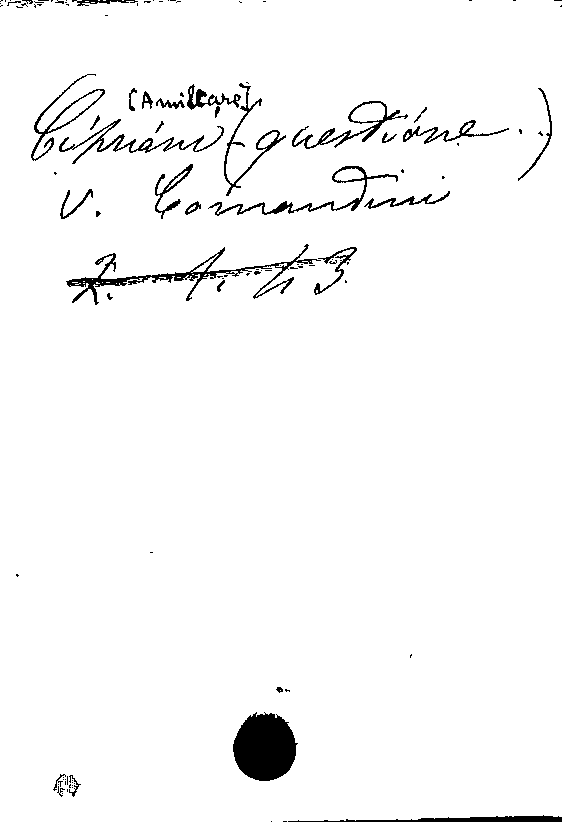 [Amilcare]
Cipriani (questione ...)
V. Comandini